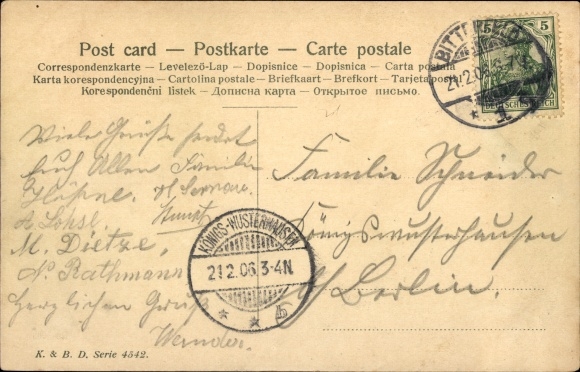 Post card — Postkarte — Carte postale
Correspondenzkarte — Levelező-Lap — Dopisnice — Dopisnica — Carta postala
Karta korespondencyjna — Cartolina postale — Briefkaart — Brefkort — Tarjeta postal
Korespondenční listek — Дописна карта — Открытое письмо.
5
DEUTSCHES REICH
BITTERFELD
21.2.06
* 1 *
Viele Grüße sendet
Euch Allen Familie
M. Dietze,
N. Rathmann
Herzlichen Gruß
Familie Schneider
Königswusterhausen
b/ Berlin.
KÖNIGS-WUSTERHAUSEN
21.2.06.3-4N.
* * b
K. & B. D. Serie 4542.